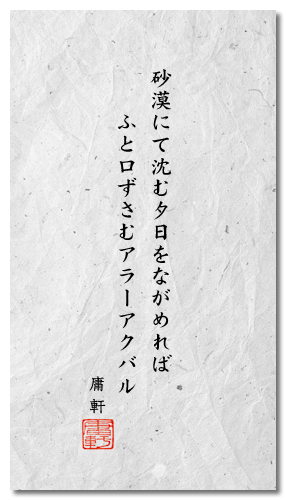 砂漠にて沈む夕日をながめれば
ふと口ずさむアラーアクバル
庸軒
庸軒